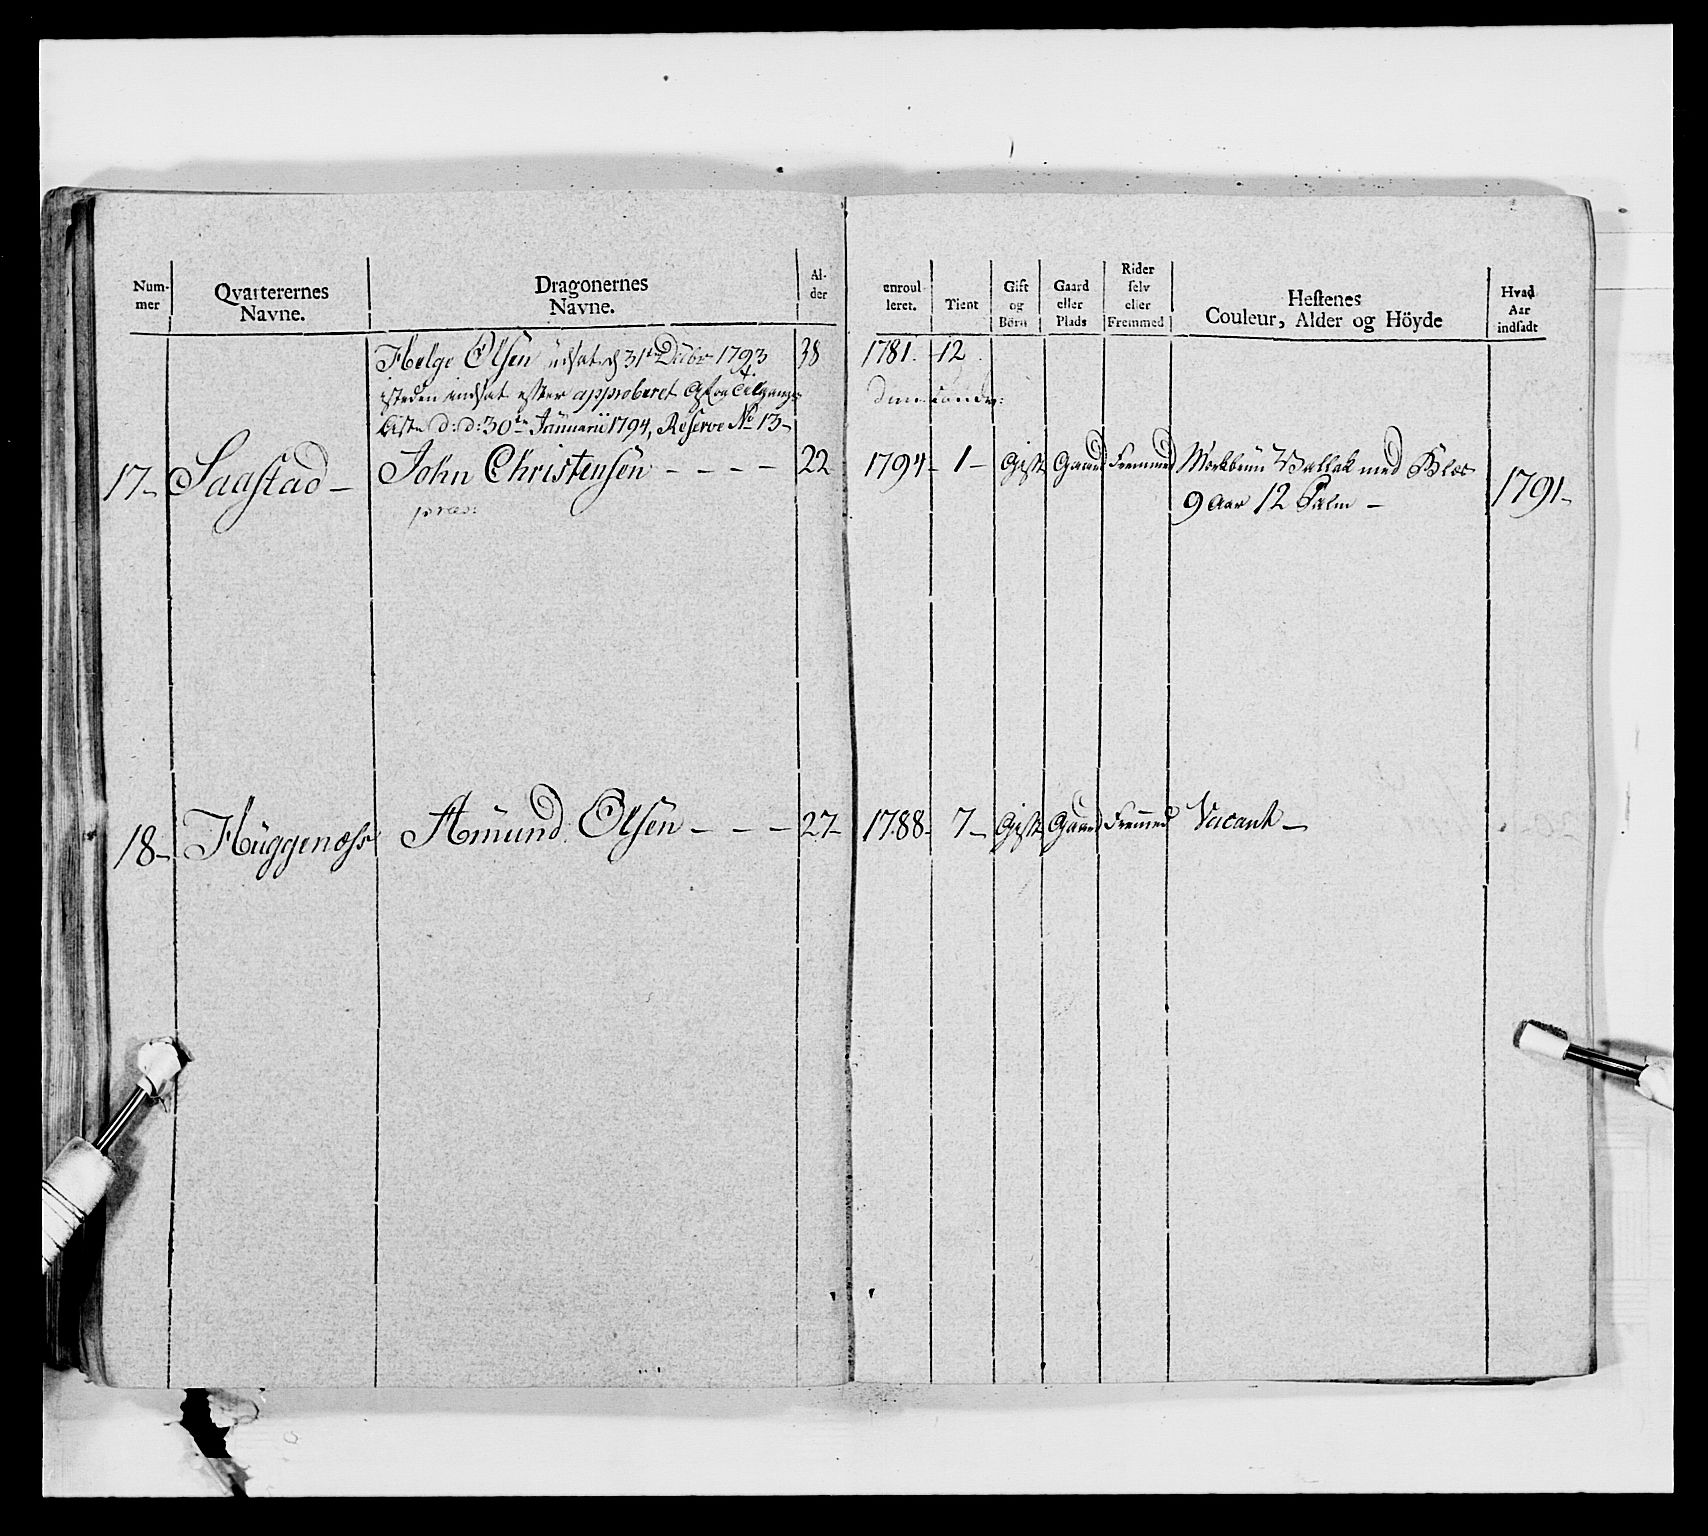 Num-
mer
Qvarterernes
Navne.
Dragonernes
Navne.
Al-
der
enroul
leret.
Tient
Gift
og
Börn
Gaard
eller
Plads
Rider
selv
eller
Fremmed
Hestenes
Couleur, Alder og Höyde
Hvad
Aar
indsadt
Helge Olsen udsat d 31te Decbr 1793 38 1781. 12
isteden indsat efter approberet Af og Tilgangs
Liste d: d: 30te Januarii 1794, Reserve No 13-
17- Saastad - John Christensen - - - - 22 1794- 1- Gift Gaard Fremmed Mørkbruun Vallak med Blæs
præs: 9 Aar 12 Palm - 1791-
18- Huggenæss Amund Olsen - - - 27- 1788- 7- Gift Gaard Fremmed Vacant -